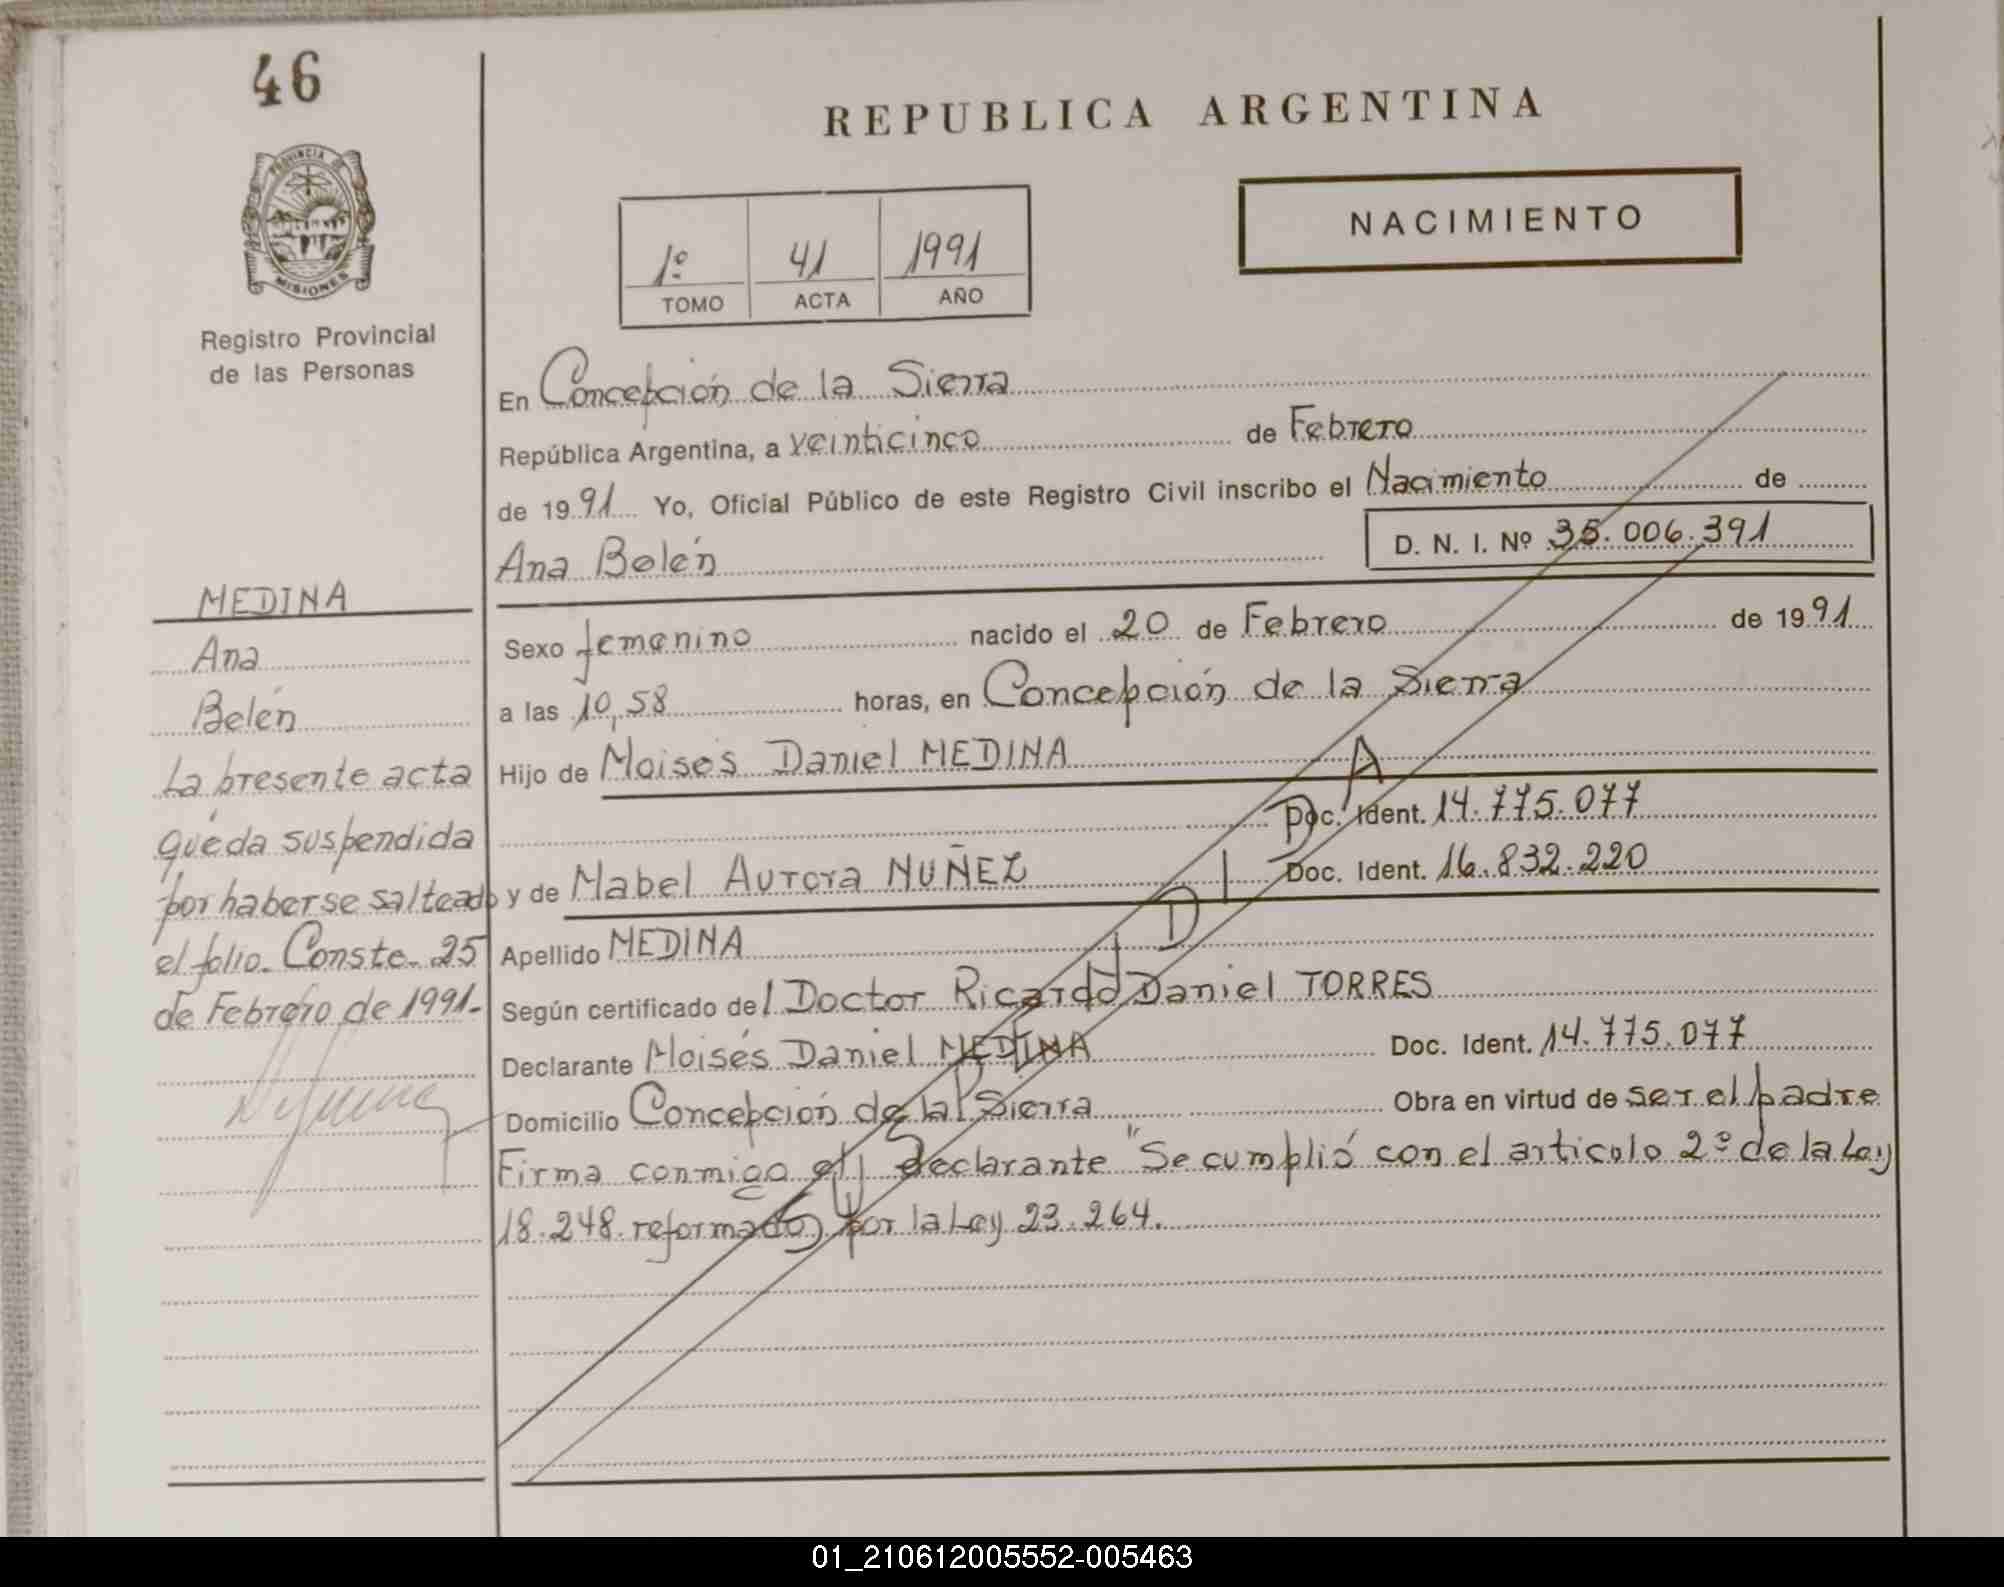 46
REPUBLICA ARGENTINA
PROVINCIA DE
MISIONES
Registro Provincial
de las Personas
NACIMIENTO
1º 41 1991
TOMO ACTA AÑO
En Concepción de la Sierra
República Argentina, a veinticinco de Febrero
de 1991 Yo, Oficial Público de este Registro Civil inscribo el Nacimiento de
Ana Belén D. N. I. Nº 35.006.391
Sexo femenino nacido el 20 de Febrero de 1991
a las 10,58 horas, en Concepción de la Sierra
Hijo de Moisés Daniel MEDINA
Doc. Ident. 14.775.077
y de Mabel Aurora NUÑEZ Doc. Ident. 16.832.220
Apellido MEDINA
Según certificado del Doctor Ricardo Daniel TORRES
Declarante Moisés Daniel MEDINA Doc. Ident. 14.775.077
Domicilio Concepción de la Sierra Obra en virtud de ser el padre
Firma conmigo el declarante "Se cumplió con el articulo 2º de la Ley
18.248 reformado por la Ley 23.264.
SUSPENDIDA
MEDINA
Ana
Belén
La presente acta
queda suspendida
por haberse salteado
el folio. Conste. 25
de Febrero de 1991.-
01_210612005552-005463